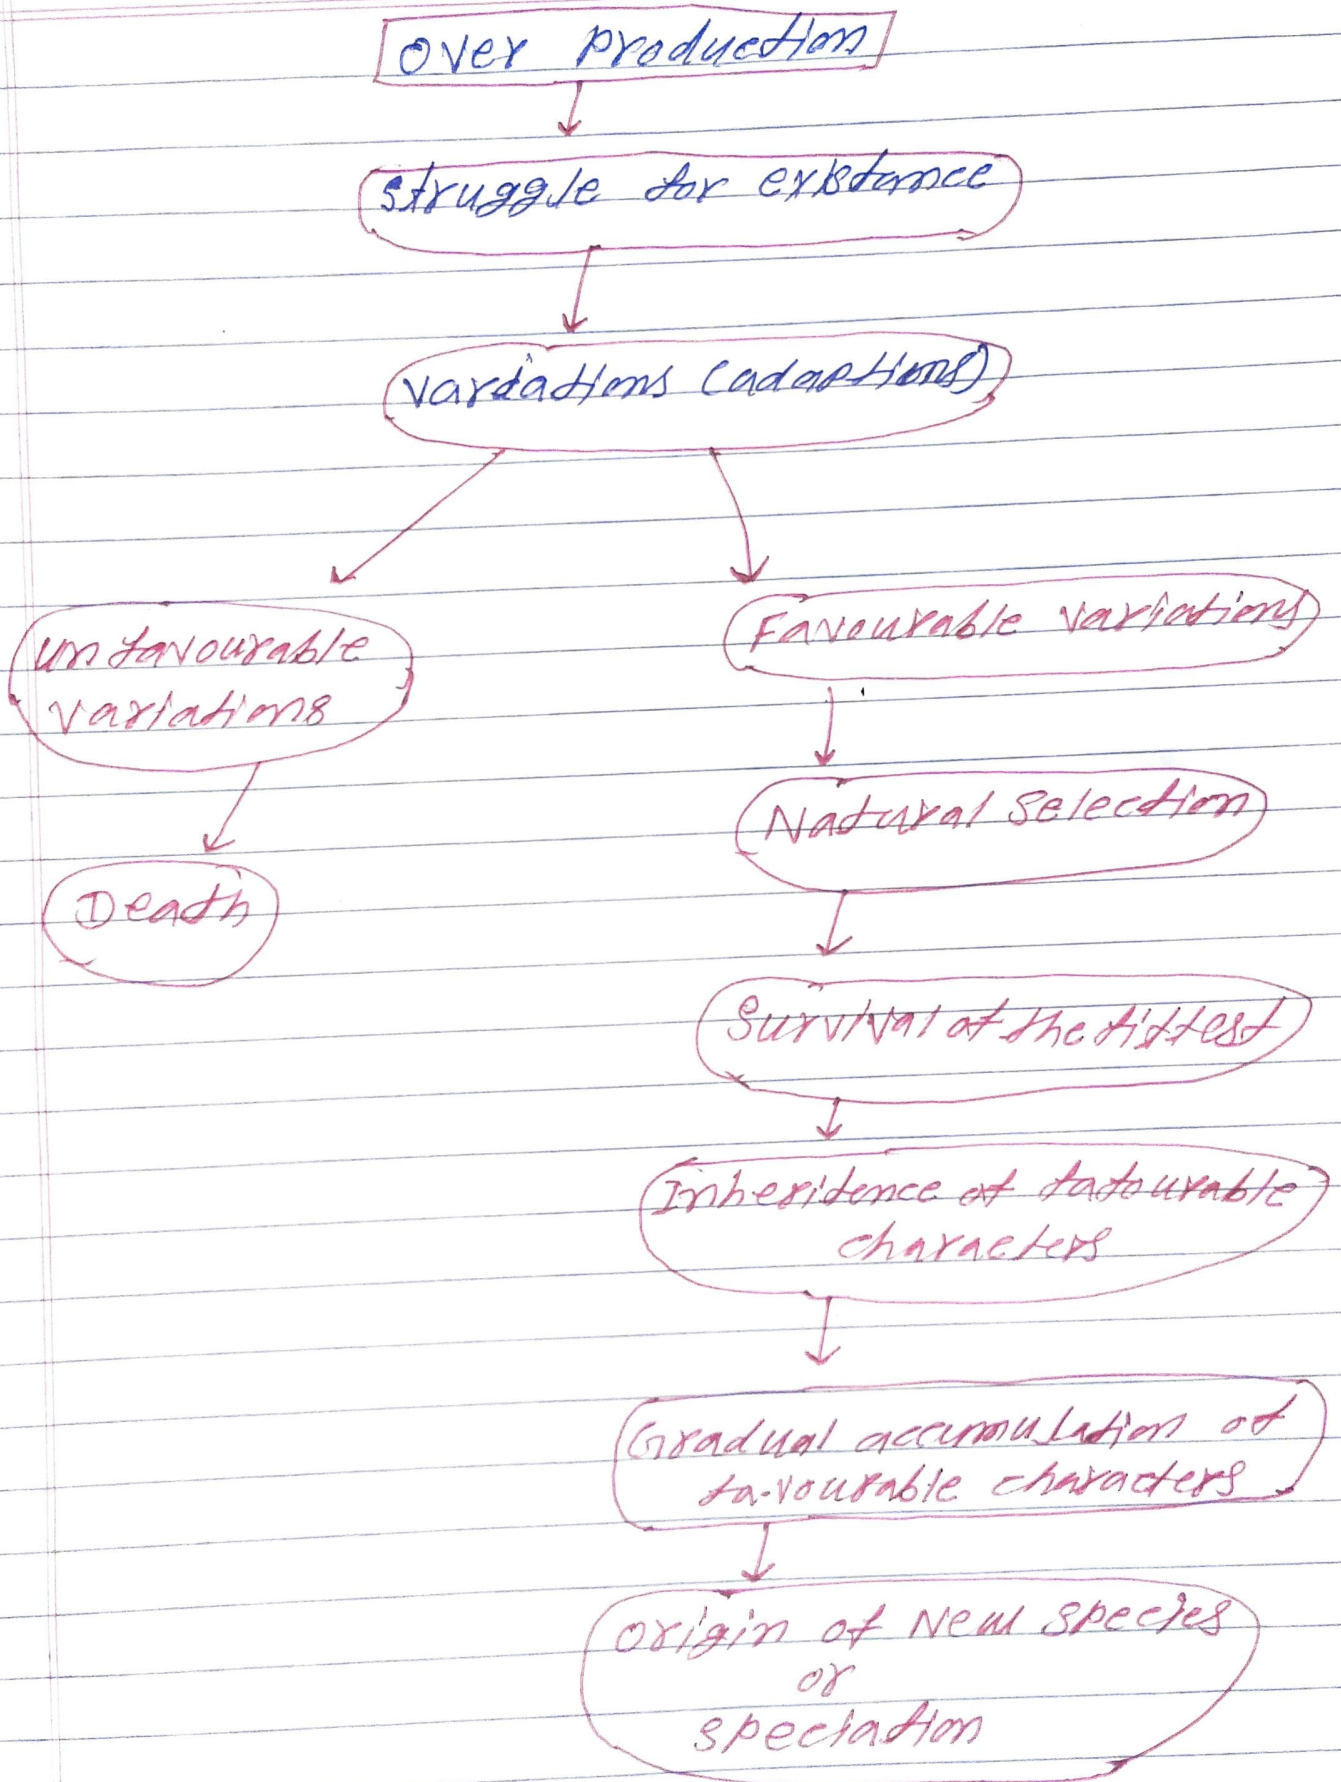 Over Production
Struggle for existance
Variations (adaptions)
Unfavourable
variations
Favourable variations
Natural Selection
Death
Survival of the fittest
Inheritence of fafourable
characters
Gradual accumulation of
favourable characters
Origin of New species
or
speciation